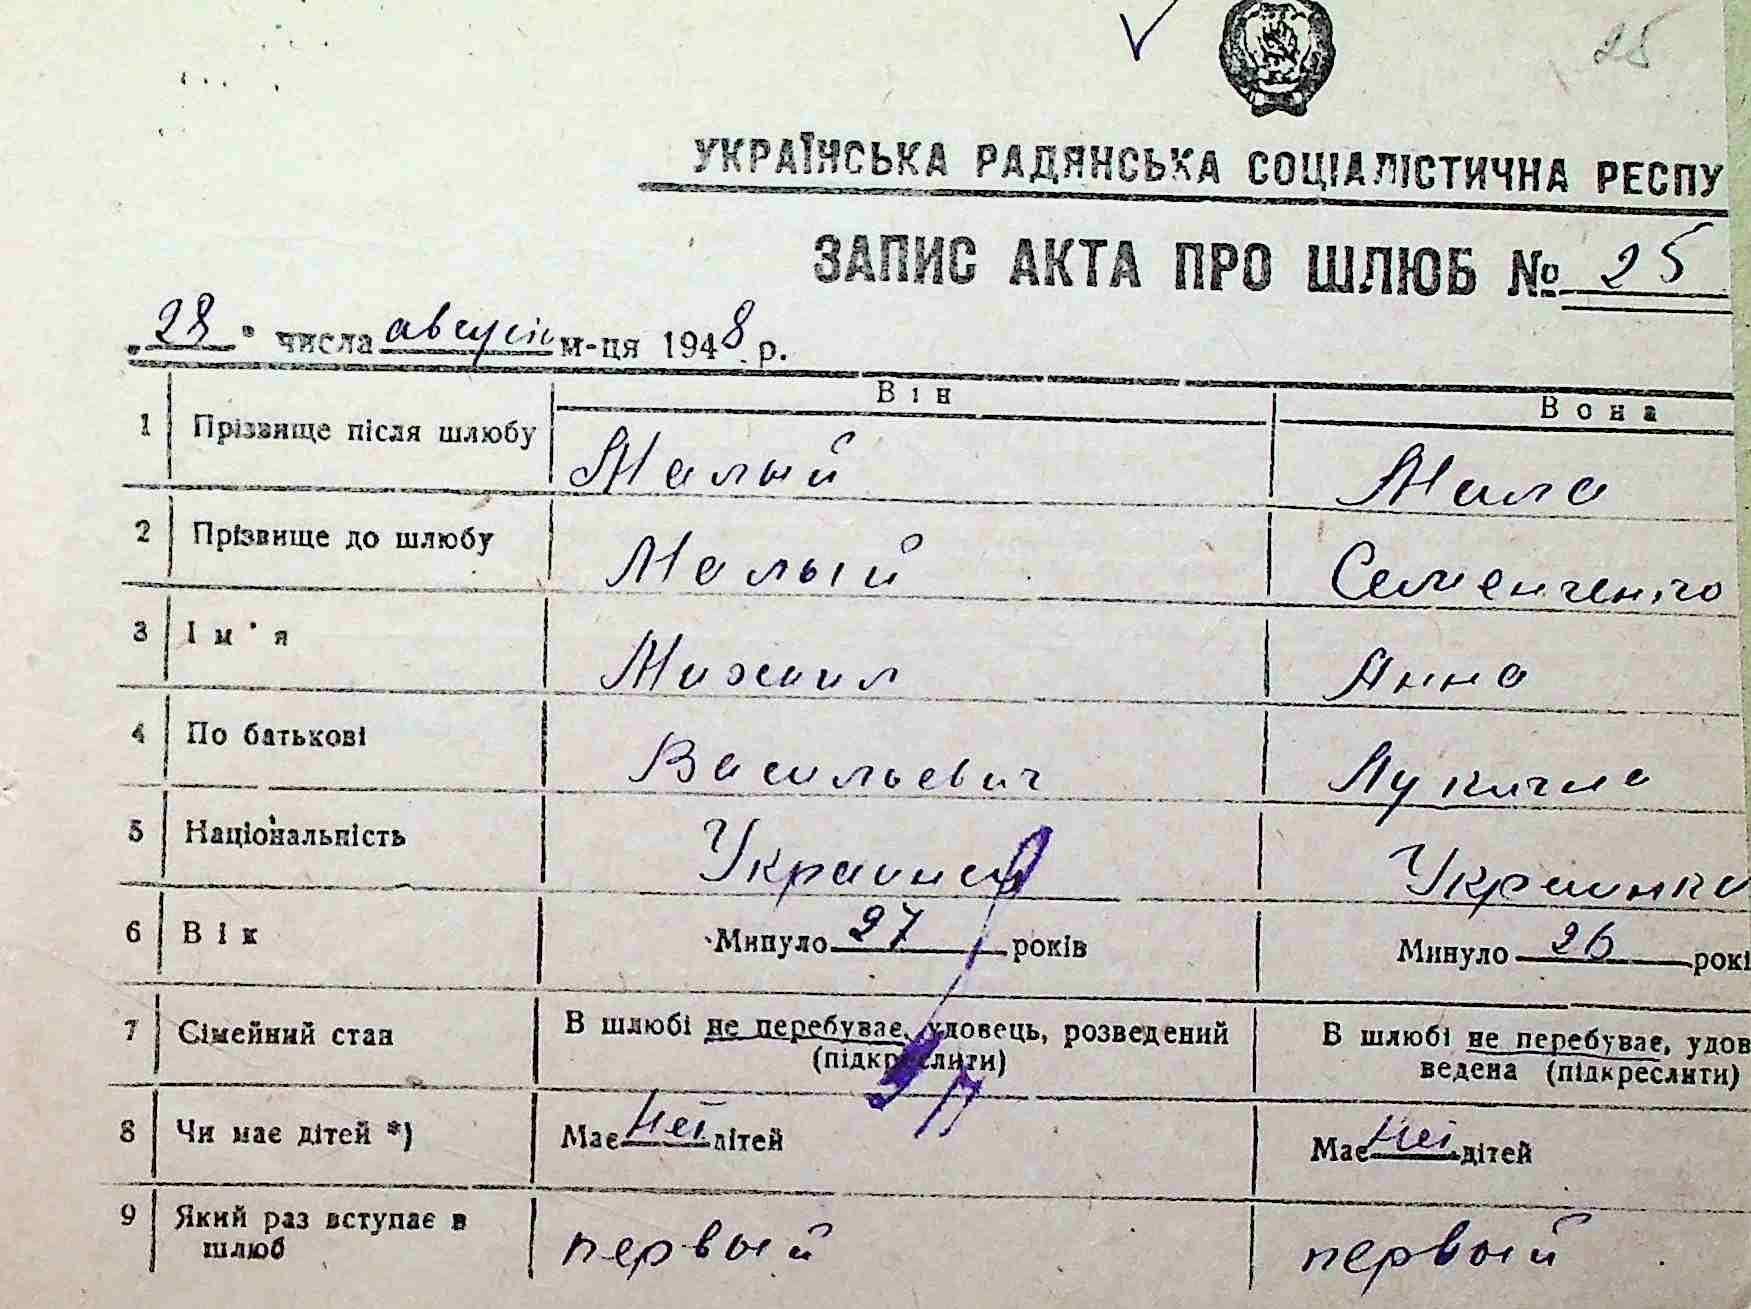 25
УКРАЇНСЬКА РАДЯНСЬКА СОЦІАЛІСТИЧНА РЕСПУ
ЗАПИС АКТА ПРО ШЛЮБ № 25
„28" числа август м-ця 1948 р.
Він Вона
1 Прізвище після шлюбу Малый Мала
2 Прізвище до шлюбу Малый Семенченко
3 Ім'я Михаил Анна
4 По батькові Васильевич Лукична
5 Національність Украинец Украинка
6 Вік Минуло 27 років Минуло 26 рокі
7 Сімейний стан В шлюбі не перебуває, удовець, розведений В шлюбі не перебуває, удов
(підкреслити) ведена (підкреслити)
8 Чи має дітей *) Має нет дітей Має нет дітей
9 Який раз вступає в первый первый
шлюб